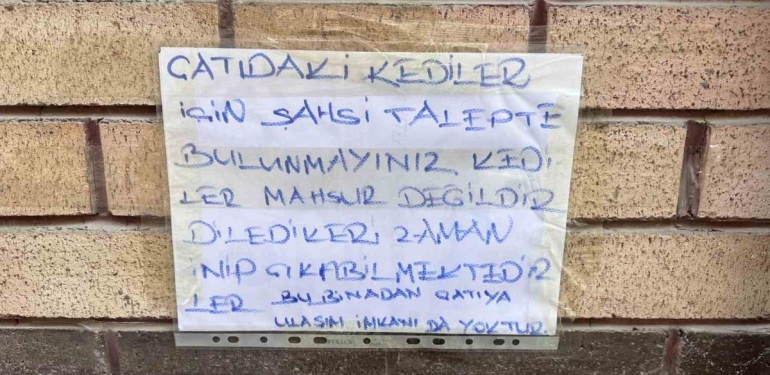 ÇATIDAKİ KEDİLER
İÇİN ŞAHSİ TALEPTE
BULUNMAYINIZ KEDİ-
LER MAHSUR DEĞİLDİR
DİLEDİKERİ ZAMAN
İNİP ÇIKABİLMEKTEDİR
LER BU BİNADAN ÇATIYA
ULAŞIM İMKANI DA YOKTUR.